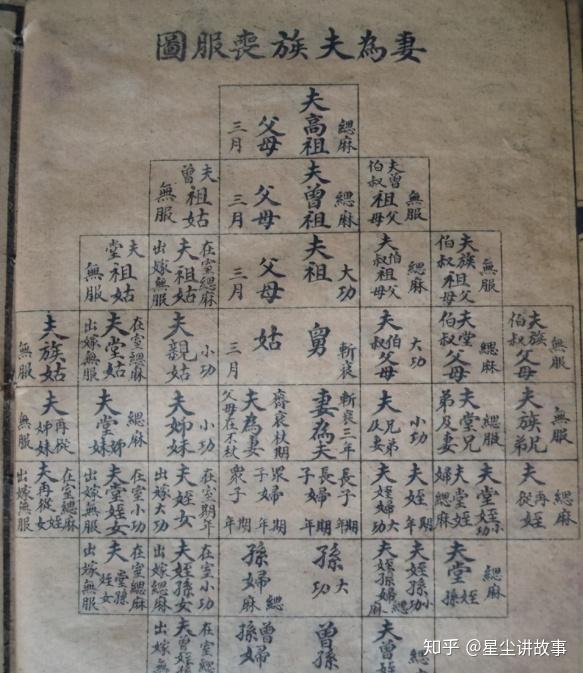 妻為夫族喪服圖
緦麻 夫高祖父母 三月
無服 夫曾伯叔祖父母
緦麻 夫曾祖父母 三月
夫曾祖姑 無服
無服 夫族伯叔祖父母
緦麻 夫伯叔祖父母
大功 夫祖父母 三月
在室緦麻 夫祖姑 出嫁無服
夫堂祖姑 無服
無服 夫族伯叔父母
緦麻 夫堂伯叔父母
大功 夫伯叔父母
斬衰 舅姑 三月
小功 夫親姑
在室緦麻 夫堂姑 出嫁無服
夫族姑 無服
無服 夫族兄弟
緦服 夫堂兄弟及妻
小功 夫兄弟及妻
斬衰三年 妻為夫
齊衰杖期 夫為妻 父母在不杖
小功 夫姊妹
緦麻 夫堂姊妹
夫再從姊妹 無服
緦麻 夫再從姪
夫堂姪小功 夫堂姪婦緦
夫姪期年 夫姪婦大功
長子期年 長子婦期年
眾子婦期年 眾子期年
在室期年 夫姪女 出嫁大功
在室小功 夫堂姪女 出嫁無服
在室緦麻 夫再從姪女 出嫁無服
緦麻 夫堂姪孫
夫姪孫小功 夫姪孫婦緦麻
大功 孫
緦麻 孫婦
在室小功 夫姪孫女 出嫁緦麻
在室緦麻 夫堂姪孫女 出嫁無服
緦 夫曾姪
曾孫
曾孫婦
在室緦 夫曾姪孫 出嫁無
知乎 @星尘讲故事